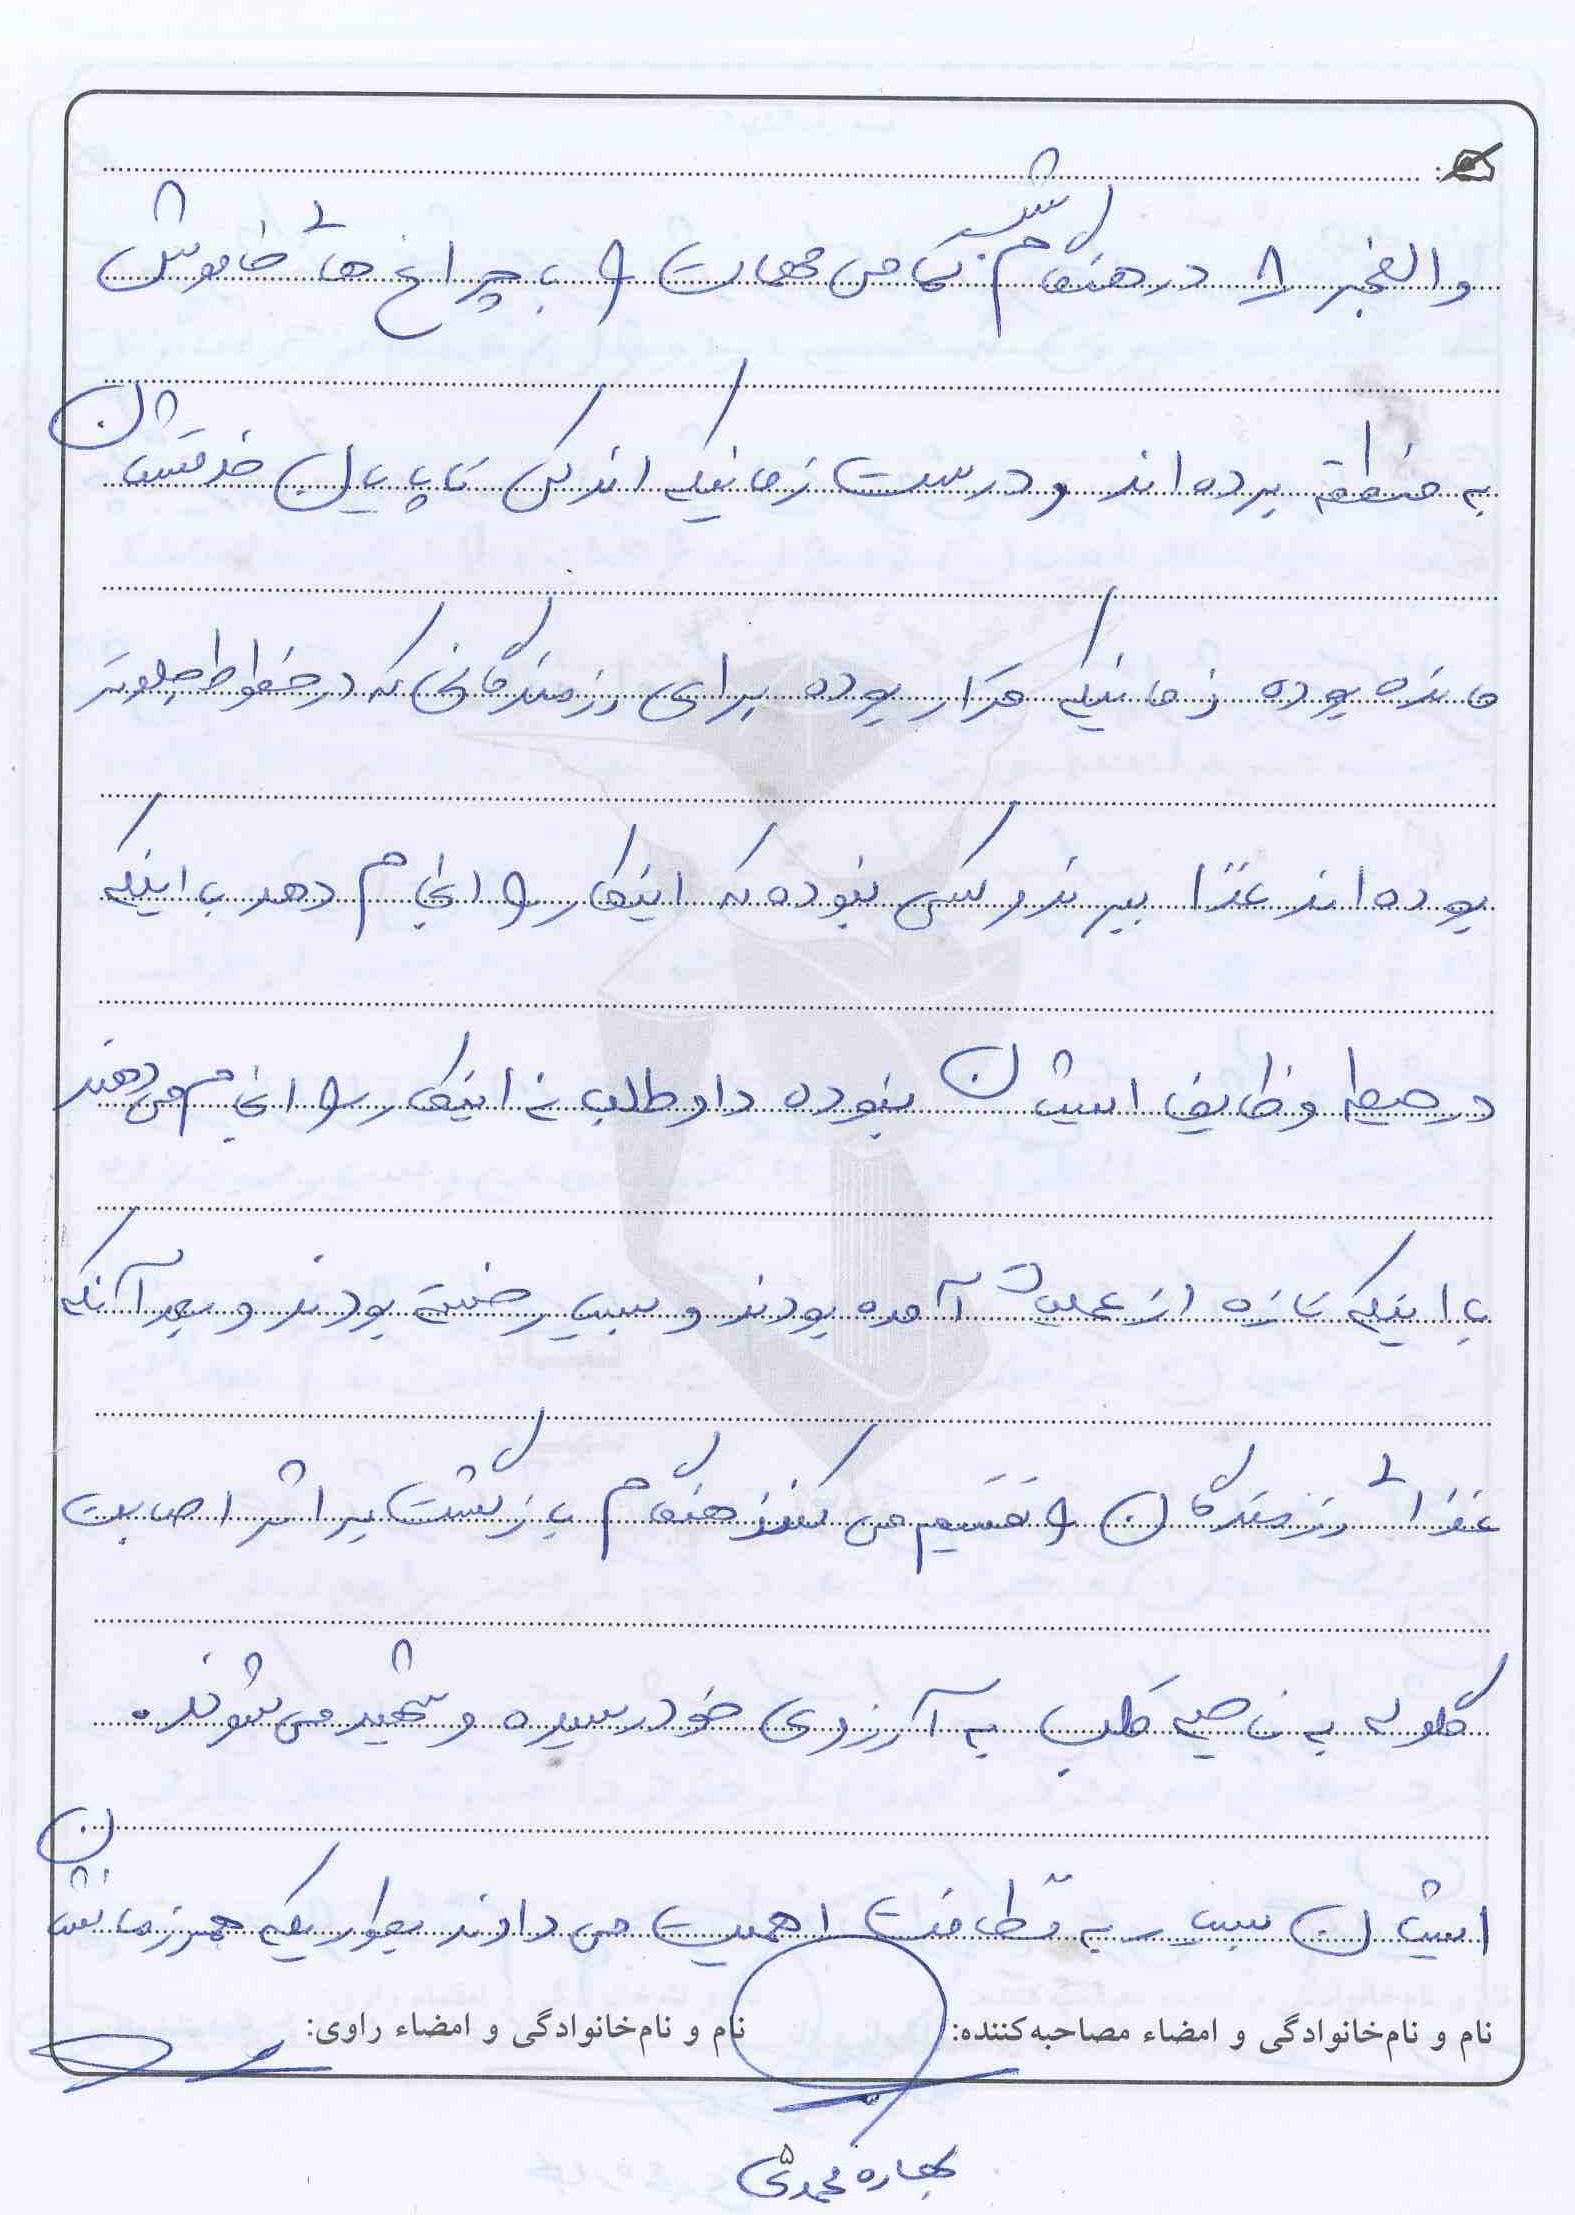 والفجر ۸ در هنگام شب تمامی مهمات را با چراغ های خاموش
به منطقه برده اند و درست زمانیکه اندکی تا پایان خدمتشان
مانده بوده زمانیکه قرار بوده برای رزمندگانی که در خطوط جلوتر
بوده اند غذا ببرند و کسی نبوده که اینکار را انجام دهد با اینکه
در حیطه وظایف ایشان نبوده داوطلبانه اینکار را انجام می دهند
با اینکه تازه از عملیات آمده بودند و بسیار خسته بودند و بعد آنکه
غذای رزمندگان را تقسیم می کنند هنگام بازگشت بر اثر اصابت
گلوله به ناحیه قلب به آرزوی خود رسیده و شهید می شوند.
ایشان بسیار به نظافت اهمیت می دادند بطوریکه همرزمانشان
نام و نام‌خانوادگی و امضاء مصاحبه‌کننده: نام و نام‌خانوادگی و امضاء راوی:
بهاره محمدی
۵